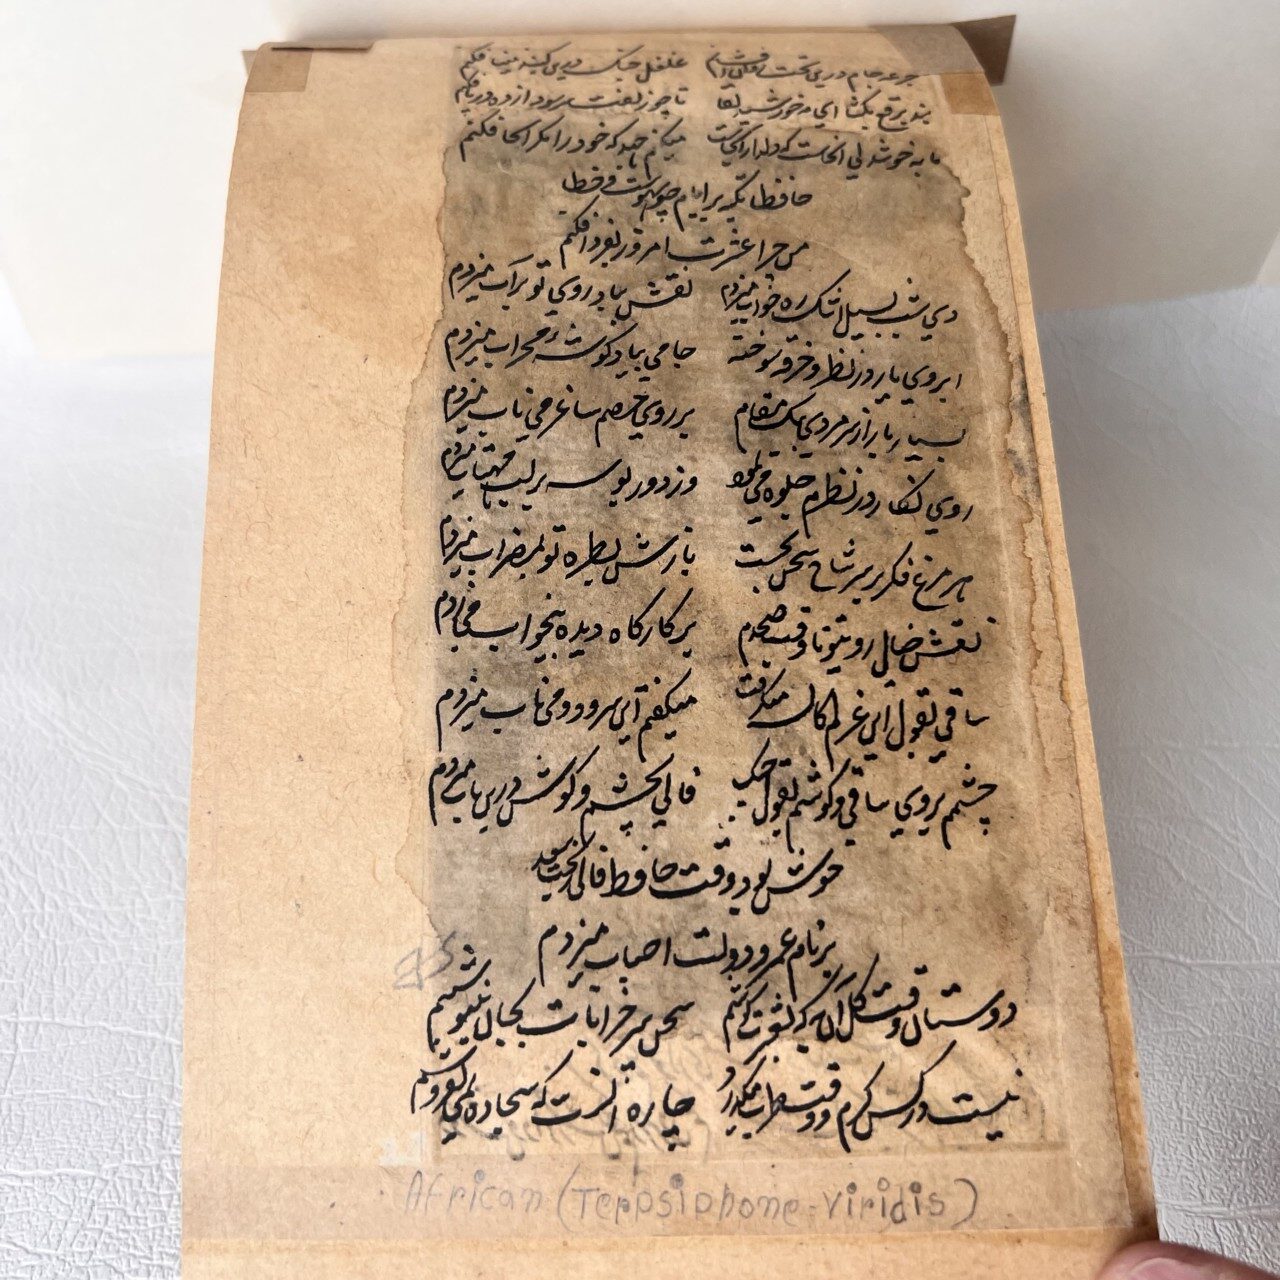 جرعه جام درین تخت روان افشانم غلغل چنک درین کنبد مینا فکنم
بند برقع بکشا ای مه خورشید لقا تا چو زلفت سر سودازده در پا فکنم
مایه خوشدلی انجاست که دلدار انجاست میکنم جهد که خود را مکر انجا فکنم
حافظا تکیه بر ایام چو سهوست و خطا
من چرا عشرت امروز بفردا فکنم
دی شب بسیل اشک ره خواب میزدم نقشی بیاد روی تو بر آب میزدم
ابروی یار در نظر و خرقه سوخته جامی بیاد کوشه محراب میزدم
بر روی خصم ساغر می ناب میزدم
روی نکار در نظرم جلوه می نمود وز دور بوسه بر لب مهتاب میزدم
هر مرغ فکر کز سر شاخ سخن بجست بازش بطره تو بمضراب میزدم
نقش خیال روی تو تا وقت صبحدم بر کارکاه دیده بیخواب میزدم
ساقی بقول این غزلم کاسه میکرفت میکفتم این سرود و می ناب میزدم
چشمم بروی ساقی و کوشم بقول چنک فالی بچشم و کوش درین باب میزدم
خوش بود وقت حافظ و فال
بر نام عمر و دولت احباب میزدم
دوستان وقت کل آن به که بعشرت کوشیم سخن پیر خرابات بجان بنیوشیم
نیست در کس کرم و وقت طرب میکذرد چاره آنست که سجاده بمی بفروشیم
African (Terpsiphone-viridis)